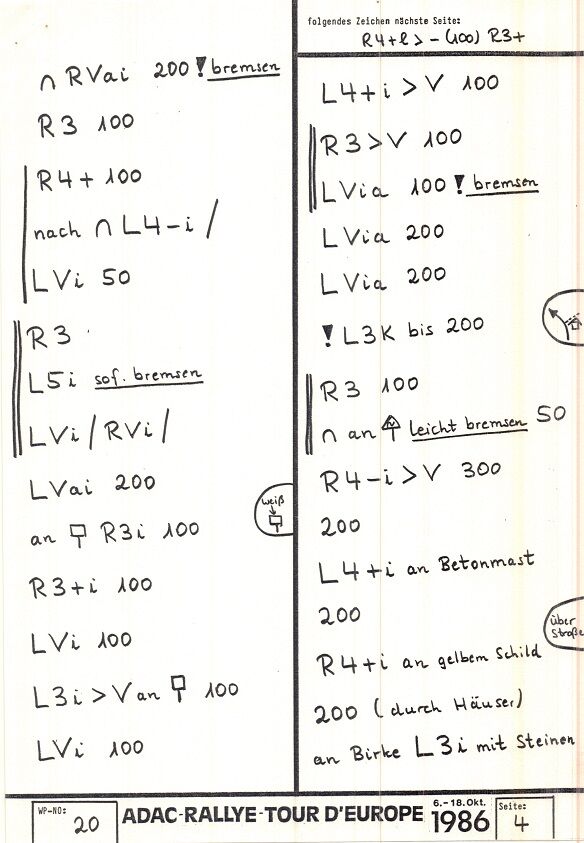 ∩ RVai 200 ! bremsen
R3 100
R4+ 100
nach ∩ L4-i /
LVi 50
R3
L5i sof. bremsen
LVi / RVi /
LVai 200
weiß
an R3i 100
R3+i 100
LVi 100
L3i > V an 100
LVi 100
folgendes Zeichen nächste Seite:
R4+l > - (100) R3+
L4+i > V 100
R3 > V 100
LVia 100 ! bremsen
LVia 200
LVia 200
! L3K bis 200
R3 100
∩ an leicht bremsen 50
R4-i > V 300
200
L4+i an Betonmast
200
über
Straße
R4+i an gelbem Schild
200 (durch Häuser)
an Birke L3i mit Steinen
WP-NO:
20
ADAC-RALLYE-TOUR D'EUROPE
6.-18.Okt.
1986
Seite:
4